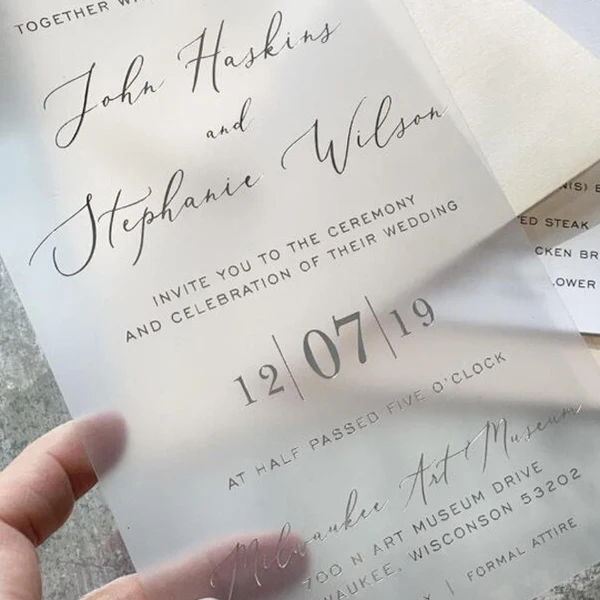 TOGETHER
John Haskins
and
Stephanie Wilson
INVITE YOU TO THE CEREMONY
AND CELEBRATION OF THEIR WEDDING
12|07|19
AT HALF PASSED FIVE O'CLOCK
Milwaukee Art Museum
700 N ART MUSEUM DRIVE
WAUKEE, WISCONSON 53202
| FORMAL ATTIRE
STEAK